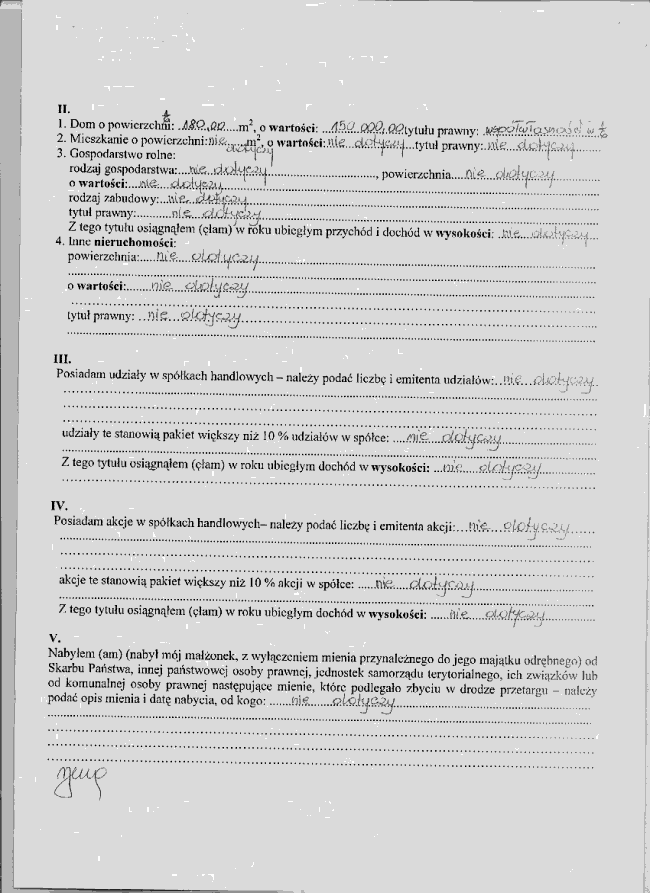 II.
1. Dom o powierzchni: 180,00 m², o wartości: 150 000,00 tytułu prawny: współwłasność w
2. Mieszkanie o powierzchni: nie dotyczy m², o wartości: nie dotyczy tytuł prawny: nie dotyczy
3. Gospodarstwo rolne:
rodzaj gospodarstwa: nie dotyczy, powierzchnia nie dotyczy
o wartości: nie dotyczy
rodzaj zabudowy: nie dotyczy
tytuł prawny: nie dotyczy
Z tego tytułu osiągnąłem (ęłam) w roku ubiegłym przychód i dochód w wysokości: nie dotyczy
4. Inne nieruchomości:
powierzchnia: nie dotyczy
o wartości: nie dotyczy
tytuł prawny: nie dotyczy
III.
Posiadam udziały w spółkach handlowych – należy podać liczbę i emitenta udziałów: nie dotyczy
udziały te stanowią pakiet większy niż 10 % udziałów w spółce: nie dotyczy
Z tego tytułu osiągnąłem (ęłam) w roku ubiegłym dochód w wysokości: nie dotyczy
IV.
Posiadam akcje w spółkach handlowych– należy podać liczbę i emitenta akcji: nie dotyczy
akcje te stanowią pakiet większy niż 10 % akcji w spółce: nie dotyczy
Z tego tytułu osiągnąłem (ęłam) w roku ubiegłym dochód w wysokości: nie dotyczy
V.
Nabyłem (am) (nabył mój małżonek, z wyłączeniem mienia przynależnego do jego majątku odrębnego) od
Skarbu Państwa, innej państwowej osoby prawnej, jednostek samorządu terytorialnego, ich związków lub
od komunalnej osoby prawnej następujące mienie, które podlegało zbyciu w drodze przetargu – należy
podać opis mienia i datę nabycia, od kogo: nie dotyczy